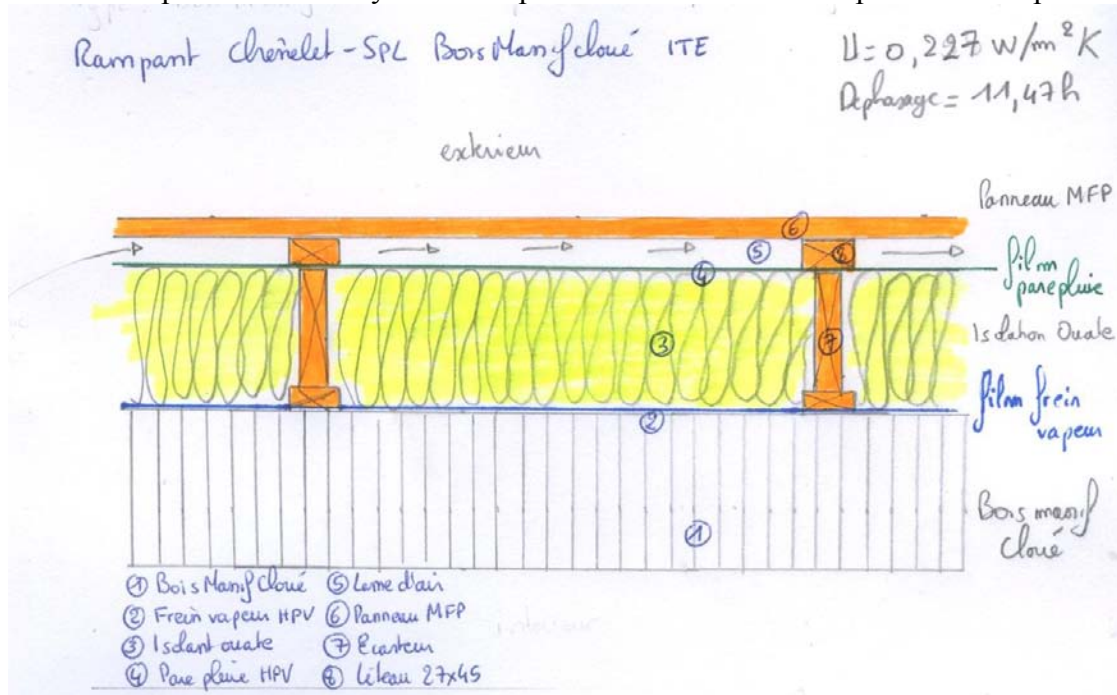 Rampant Chênelet-SPL Bois Massif cloué ITE
U=0,227 W/m²K
Dephasage = 11,47h
exterieur
Panneau MFP
film pare pluie
Isolation Ouate
film frein vapeur
Bois massif cloué
6
5
8
4
3
7
2
1
① Bois Massif Cloué
② Frein vapeur HPV
③ Isolant ouate
④ Pare pluie HPV
⑤ Lame d'air
⑥ Panneau MFP
⑦ Ecarteur
⑧ Liteau 27x45
interieur